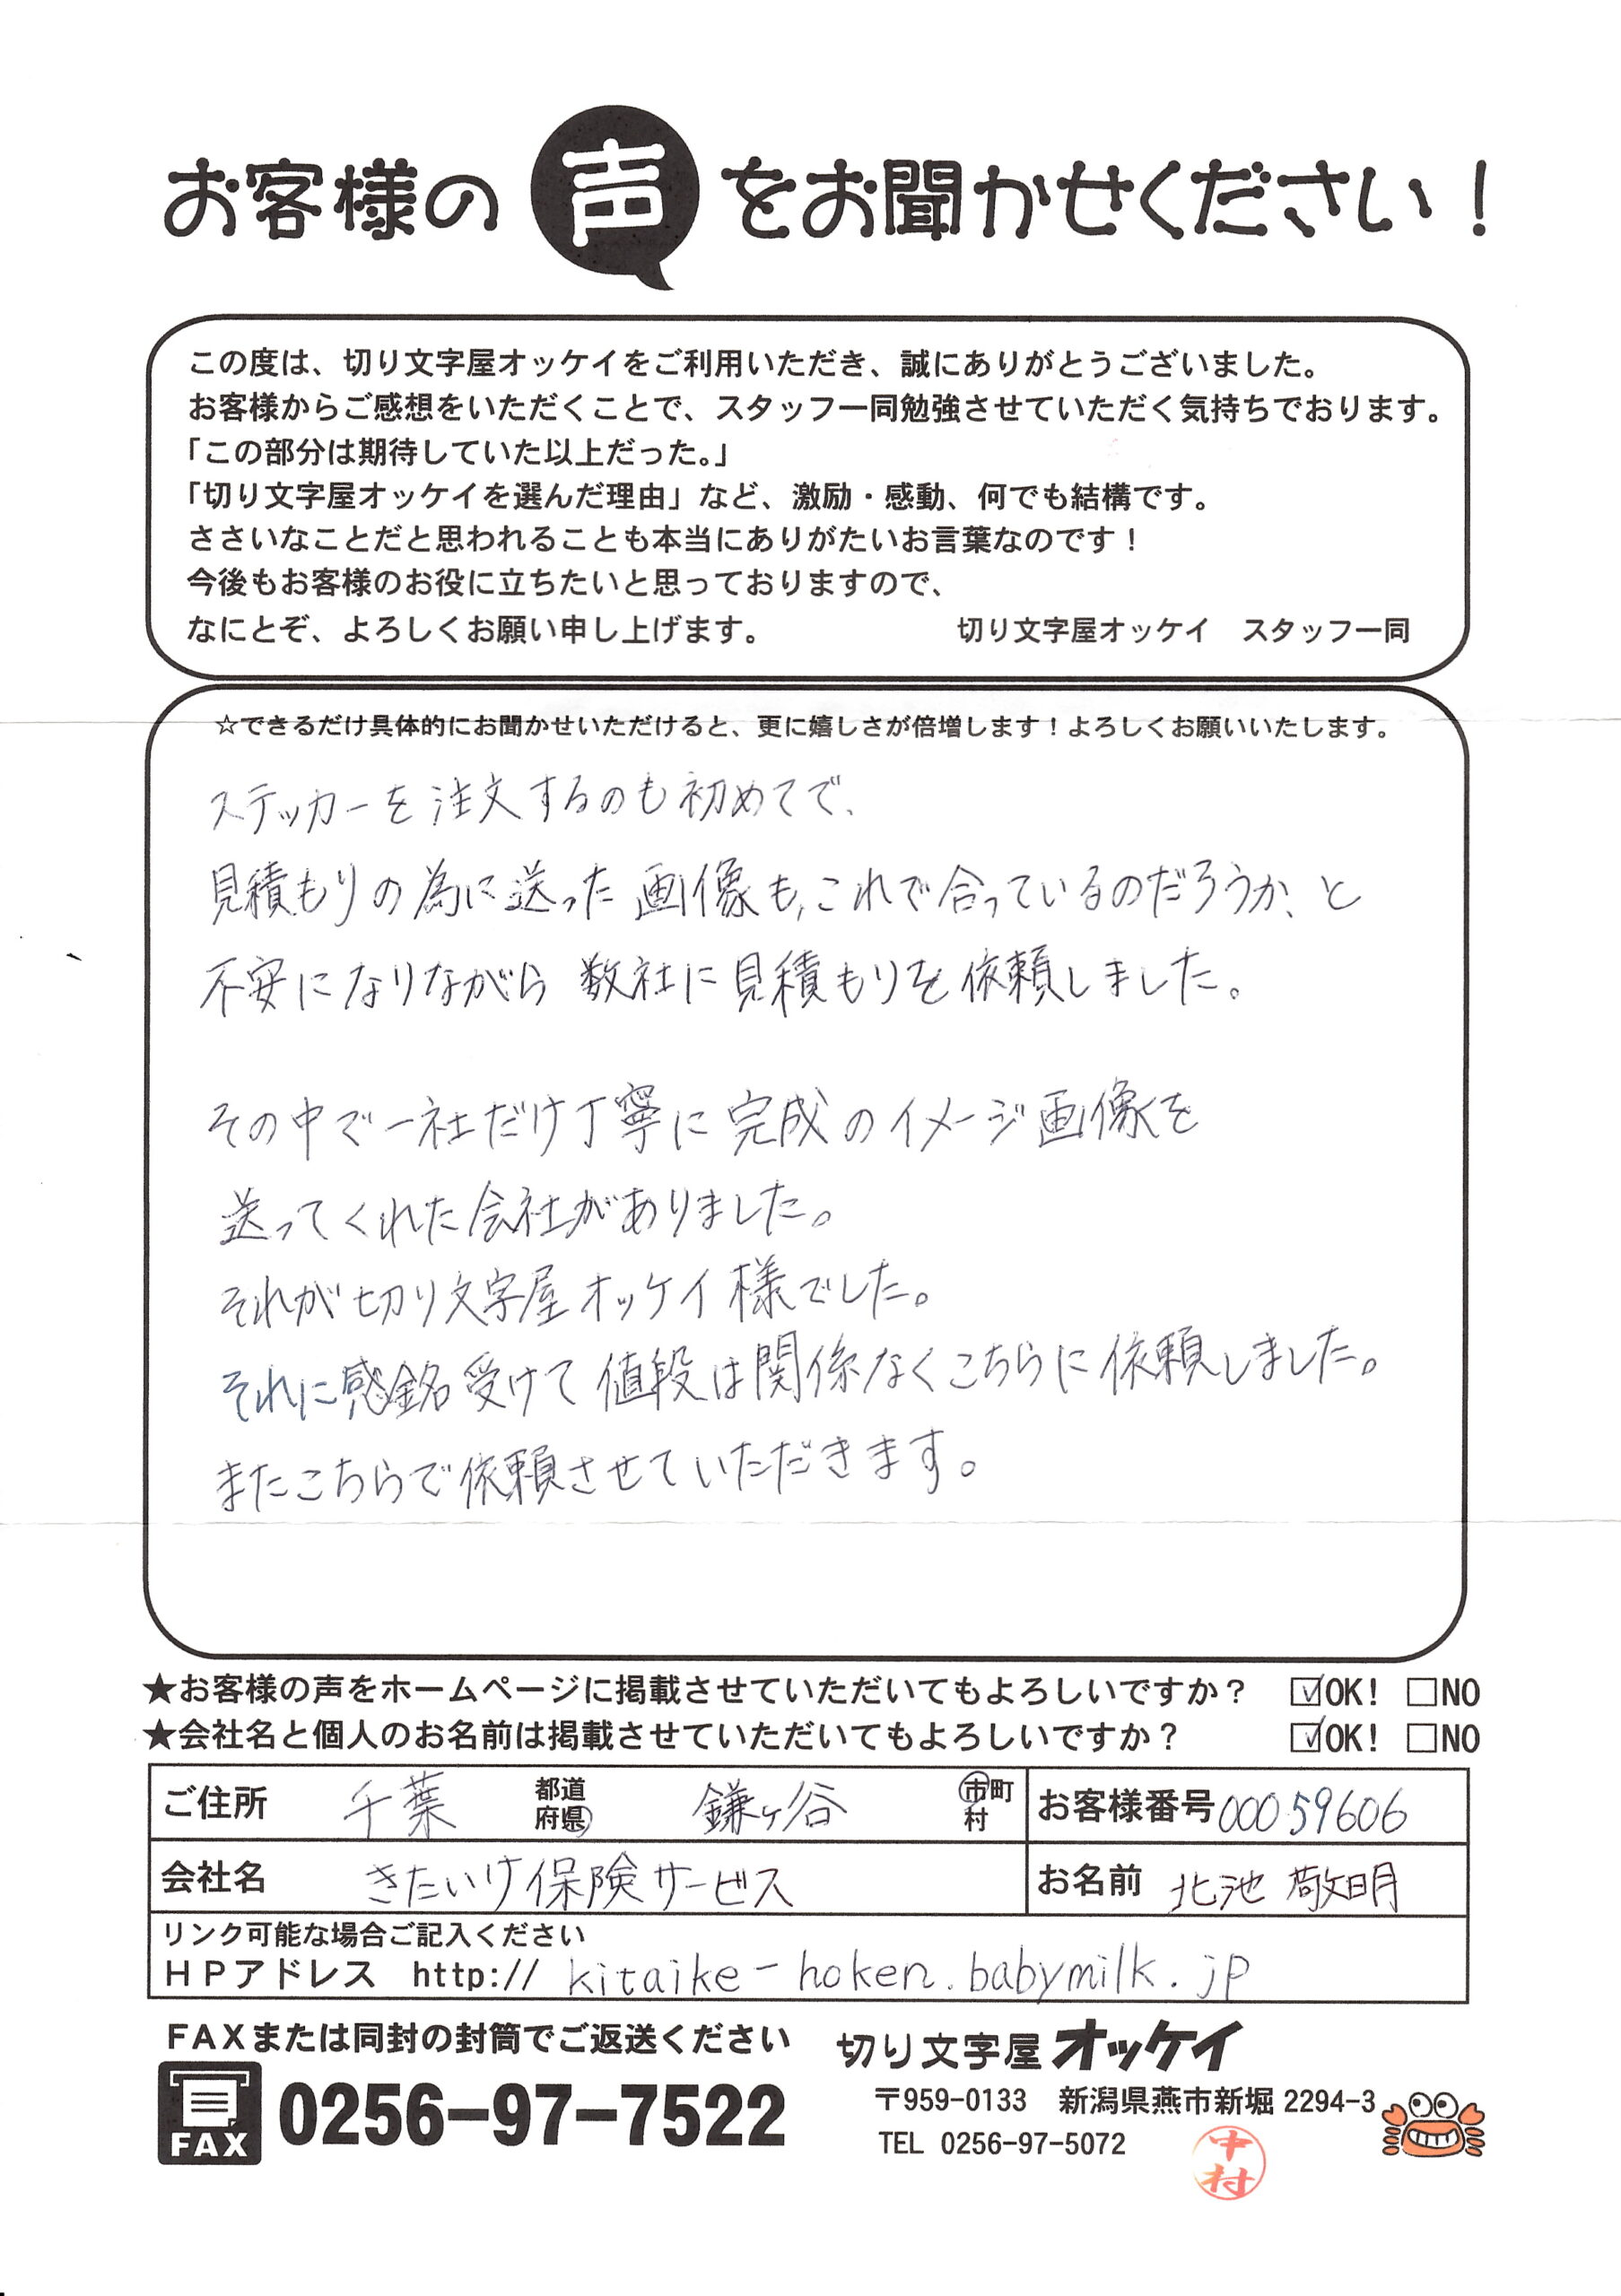 お客様の声をお聞かせください！
この度は、切り文字屋オッケイをご利用いただき、誠にありがとうございました。
お客様からご感想をいただくことで、スタッフ一同勉強させていただく気持ちでおります。
「この部分は期待していた以上だった。」
「切り文字屋オッケイを選んだ理由」など、激励・感動、何でも結構です。
ささいなことだと思われることも本当にありがたいお言葉なのです！
今後もお客様のお役に立ちたいと思っておりますので、
なにとぞ、よろしくお願い申し上げます。　切り文字屋オッケイ　スタッフ一同
☆できるだけ具体的にお聞かせいただけると、更に嬉しさが倍増します！よろしくお願いいたします。
ステッカーを注文するのも初めてで、
見積もりの為に送った画像も、これで合っているのだろうか、と
不安になりながら数社に見積もりを依頼しました。
その中で一社だけ丁寧に完成のイメージ画像を
送ってくれた会社がありました。
それが切り文字屋オッケイ様でした。
それに感銘受けて値段は関係なくこちらに依頼しました。
またこちらで依頼させていただきます。
★お客様の声をホームページに掲載させていただいてもよろしいですか？　☑OK!　□NO
★会社名と個人のお名前は掲載させていただいてもよろしいですか？　☑OK!　□NO
ご住所　千葉　都道府県　鎌ヶ谷　市町村　お客様番号 00059606
会社名　きたいけ保険サービス　お名前　北池 敬明
リンク可能な場合ご記入ください
ＨＰアドレス　http://kitaike-hoken.babymilk.jp
ＦＡＸまたは同封の封筒でご返送ください　切り文字屋オッケイ
FAX 0256-97-7522
〒959-0133　新潟県燕市新堀 2294-3
TEL 0256-97-5072
中村